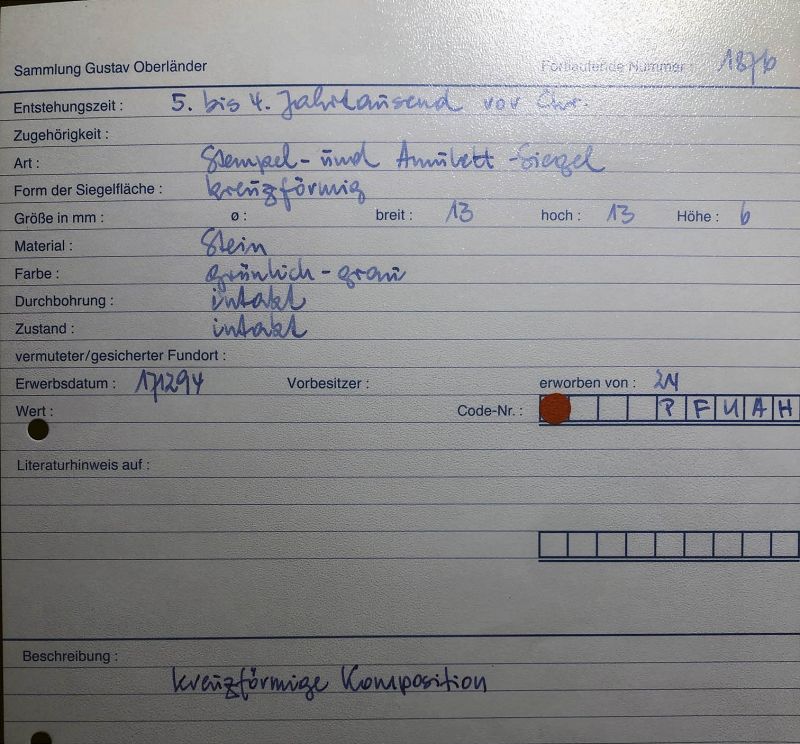 Sammlung Gustav Oberländer Fortlaufende Nummer : 187b
Entstehungszeit : 5. bis 4. Jahrtausend vor Chr.
Zugehörigkeit :
Art : Stempel- und Amulett-Siegel
Form der Siegelfläche : kreuzförmig
Größe in mm : ø : breit : 13 hoch : 13 Höhe : 6
Material : Stein
Farbe : grünlich-grau
Durchbohrung : intakt
Zustand : intakt
vermuteter/gesicherter Fundort :
Erwerbsdatum : 171294 Vorbesitzer : erworben von :
Wert : Code-Nr. : P F U A H
Literaturhinweis auf :
Beschreibung :
kreuzförmige Komposition